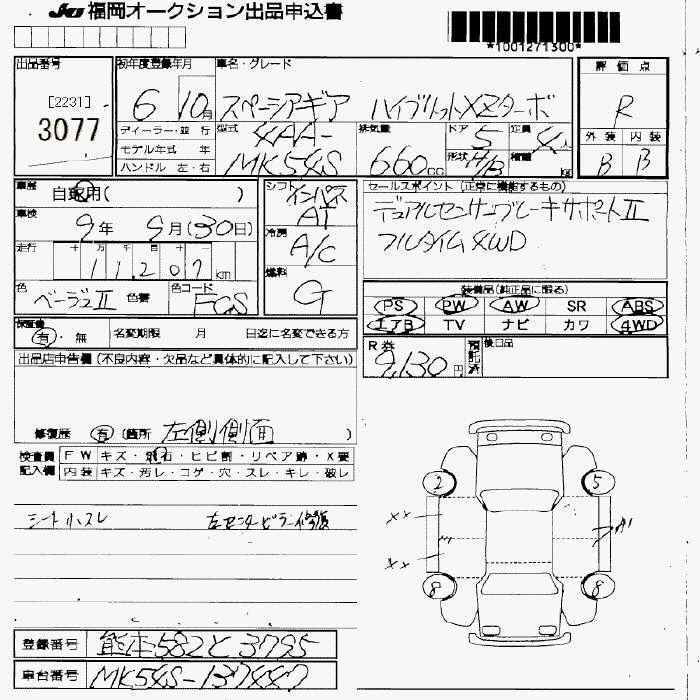 JU 福岡オークション出品申込書
*1001271300*
出品番号
[2231]
3077
初年度登録年月
6 10月
車名・グレード
スペーシアギア ハイブリットXZターボ
評価点
R
外装 内装
B B
ディーラー・並行
モデル年式 年
ハンドル 左・右
型式
4AA-
MK54S
排気量
660cc
ドア
5
定員
4人
形状
H/B
積載
kg
車歴
自家用( )
車検
9年 9月(30日)
走行
十 万 千 百 十
11,207km
色
ベージュII
色替
色コード
FGS
シフト
インパネ
AT
冷房
A/C
燃料
G
セールスポイント (正常に機能するもの)
デュアルセンサーブレーキサポートII
フルタイム4WD
装備品(純正品に限る)
PS PW AW SR ABS
エアB TV ナビ カワ 4WD
保証書
有・無
名変期限 月 日迄に名変できる方
R券
9,130円
預託済
後日品
出品店申告欄(不良内容・欠品など具体的に記入して下さい)
修復歴 有 (箇所 左側側面 )
検査員
記入欄
FW キズ・飛石・ヒビ割・リペア跡・X要
内装 キズ・汚レ・コゲ・穴・スレ・キレ・破レ
シートホスレ 左センターピラー修復
2 5
XX
XX
A1
8 8
登録番号 熊本582と3795
車台番号 MK54S-137447